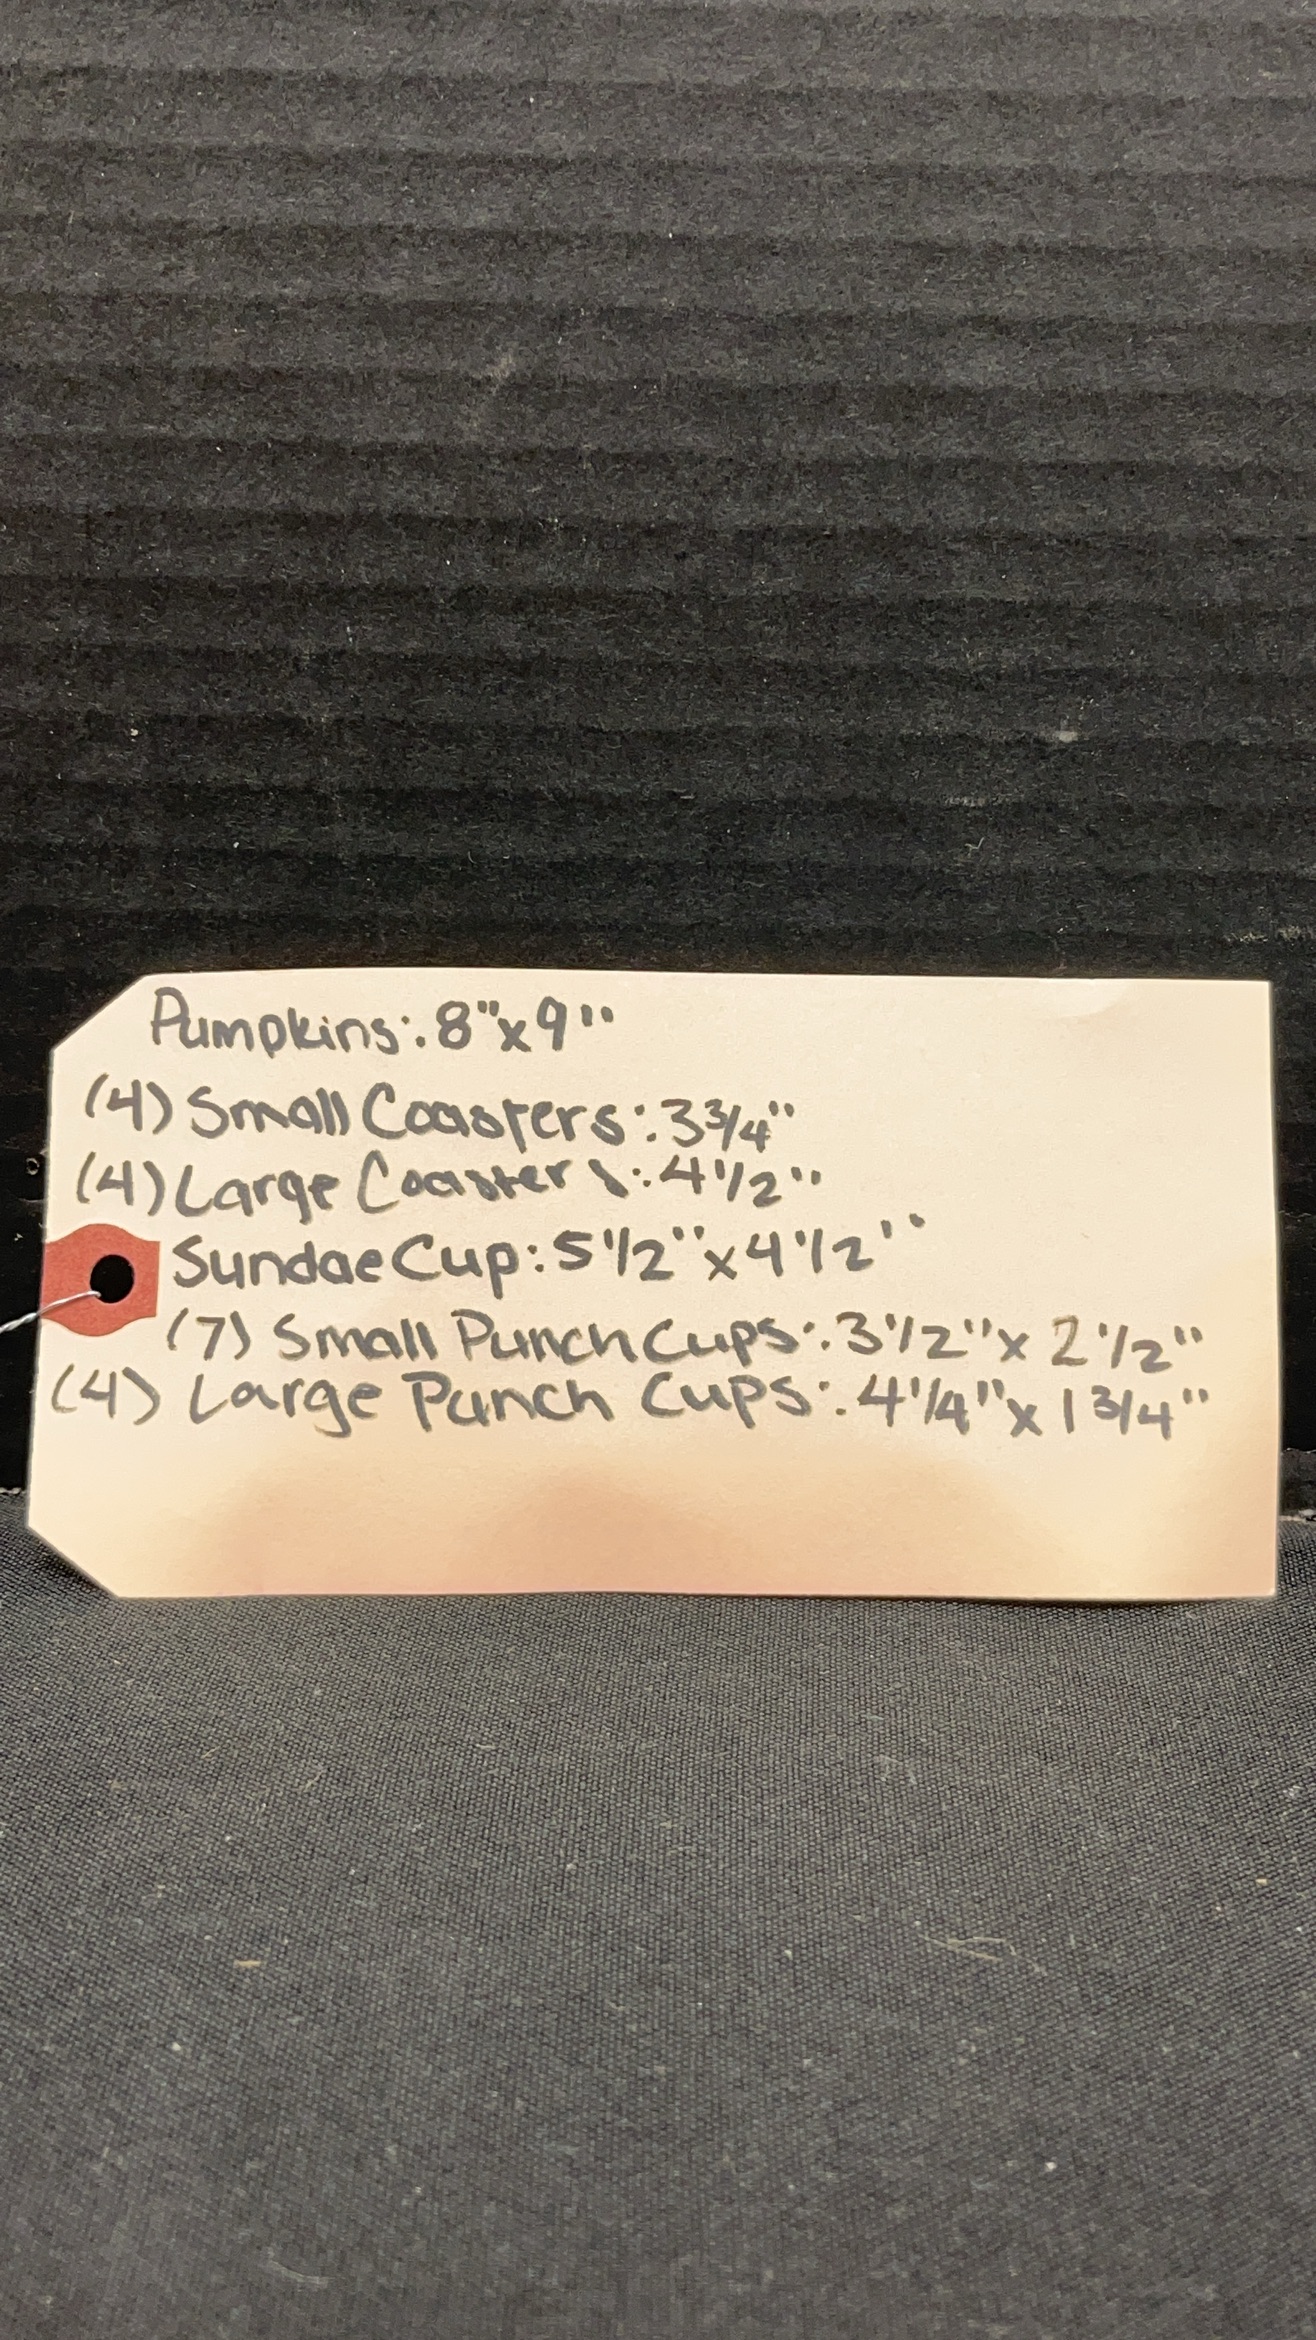 Pumpkins: 8"x9"
(4) Small Coasters: 3 3/4"
(4) Large Coasters: 4 1/2"
Sundae Cup: 5 1/2"x4 1/2"
(7) Small Punch Cups: 3 1/2"x 2 1/2"
(4) Large Punch Cups: 4 1/4"x 1 3/4"